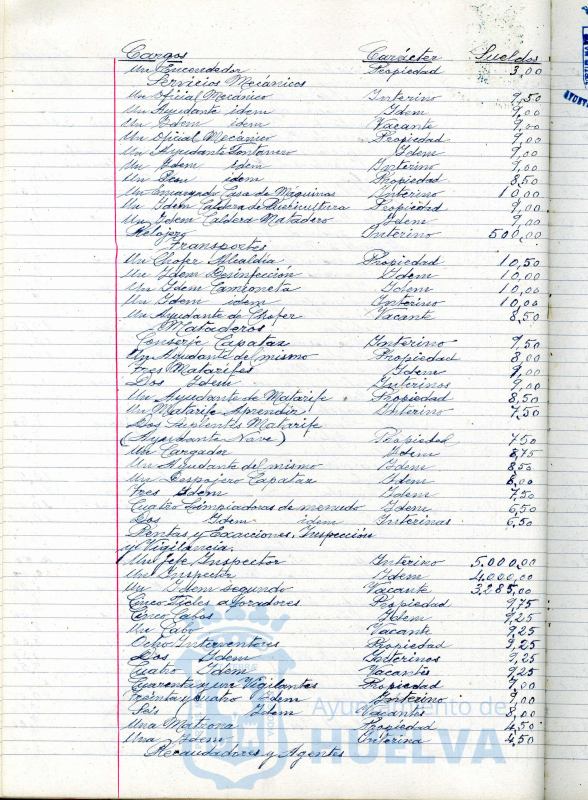 Cargos Carácter Sueldos
Un Encendedor Propiedad 3,00
Servicios Mecánicos
Un Oficial Mecánico Interino 9,50
Un Ayudante idem Idem 9,00
Un Idem idem Vacante 9,00
Un Oficial Mecánico Propiedad 9,00
Un Ayudante Fontanero Idem 9,00
Un Idem idem Interino 9,00
Un Peon idem Propiedad 8,50
Un Encargado Casa de Máquinas Interino 10,00
Un Idem Caldera de Puericultura Propiedad 9,00
Un Idem Caldera Matadero Idem 9,00
Relojero Interino 500,00
Transportes
Un Chofer Alcaldía Propiedad 10,50
Un Idem Desinfección Idem 10,00
Un Idem Camioneta Idem 10,00
Un Idem idem Interino 10,00
Un Ayudante de Chofer Vacante 8,50
Mataderos
Conserje Capataz Interino 9,50
Un Ayudante del mismo Propiedad 8,00
Tres Matarifes Idem 9,00
Dos Idem Interinos 9,00
Un Ayudante de Matarife Propiedad 8,50
Un Matarife Aprendiz Interino 7,50
Dos Matarife
(Ayudante Nave) Propiedad 7,50
Un Cargador Idem 8,75
Un Ayudante del mismo Idem 8,50
Un Despojero Capataz Idem 8,00
Tres Idem Idem 7,50
Cuatro Limpiadoras de menudo Idem 6,50
Dos Idem idem Interinas 6,50
Rentas y Exacciones, Inspección
y Vigilancia.
Un Jefe Inspector Interino 5.000,00
Un Inspector Idem 4.000,00
Un Idem segundo Vacante 3.285,00
Cinco Fieles aforadores Propiedad 9,75
Cinco Cabos Idem 9,25
Un Cabo Vacante 9,25
Ocho Interventores Propiedad 9,25
Dos Idem Interinos 9,25
Cuatro Idem Vacantes 9,25
Cuarenta y un Vigilantes Propiedad 9,00
Treinta y cuatro Idem Interino 9,00
Seis Idem Vacantes 8,00
Una Matrona Propiedad 4,50
Una Idem Interina 4,50
Recaudadores y Agentes
Ayuntamiento de
HUELVA